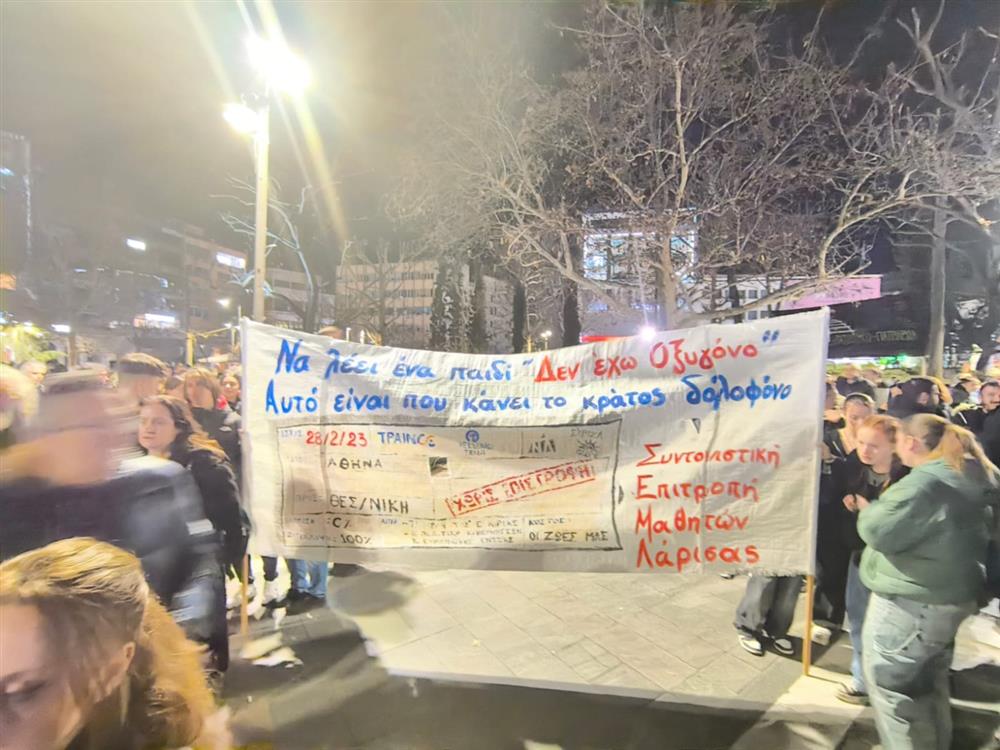 Να λέει ένα παιδί "Δεν έχω Οξυγόνο"
Αυτό είναι που κάνει το κράτος δολοφόνο
28/2/23 ΤΡΑΙΝΟΣΕ
ΑΘΗΝΑ
ΘΕΣ/ΝΙΚΗ
ΧΩΡΙΣ ΕΠΙΣΤΡΟΦΗ
100%
ΚΟΣΤΟΣ:
ΟΙ ΖΩΕΣ ΜΑΣ
Συντονιστική
Επιτροπή
Μαθητών
Λάρισας